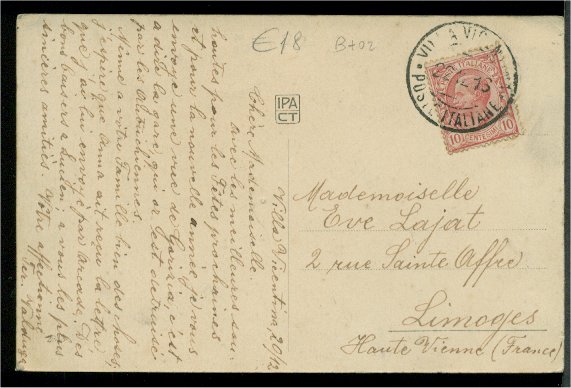 €18
B+02
VILLA VICEN
POSTE ITALIANE
10 CENTESIMI 10
IPA
CT
Villa Vicentina 20/12
Chère Mademoiselle.
avec les meilleures sou-
haites pour les fêtes prochaines
et pour la nouvelle année je vous
envoye une vue de Gorizia, c'est
a dire la gare, qui or est detruise
par les Autrichiennes.
Ninie a votre famille bien des choses,
j'espère que Anna ait reçu la lettre
que j'ai lui envoyé par
bons baisers a a vous les plus
sinceres amitiés Votre affectionné
Mademoiselle
Eve Lajat
2 rue Sainte Affre
Limoges
Haute Vienne (France)